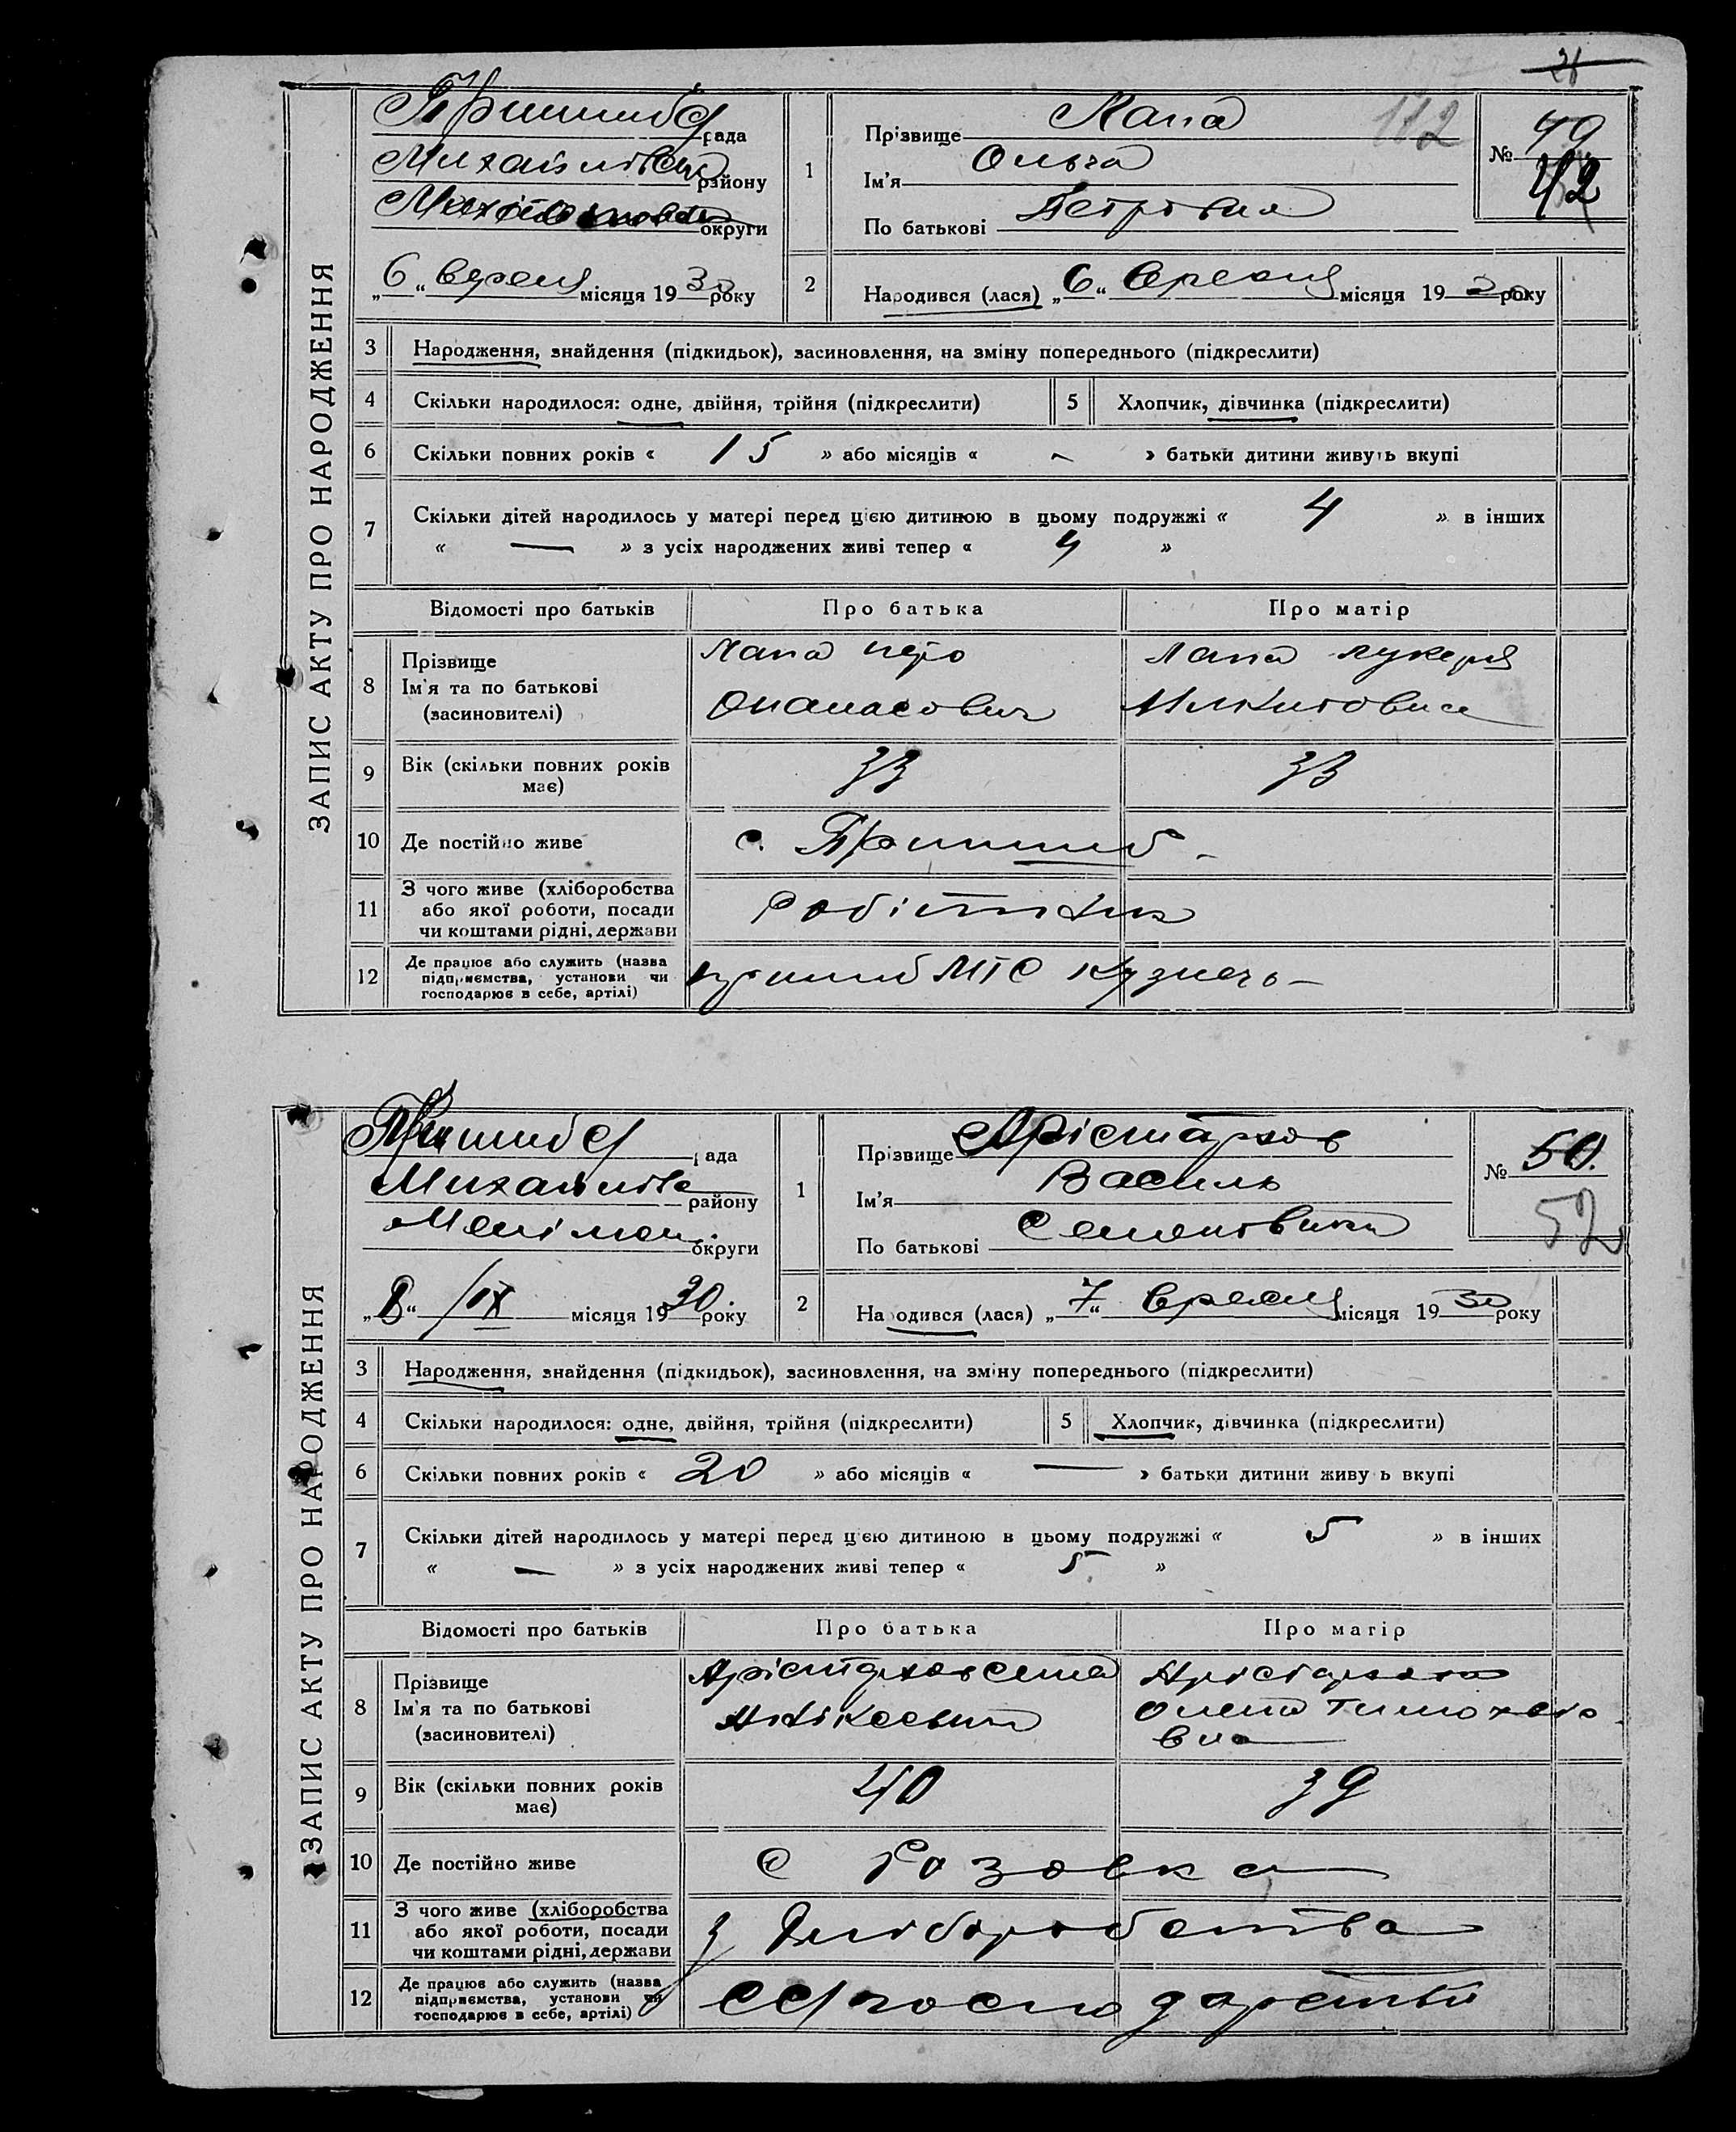 26
ЗАПИС АКТУ ПРО НАРОДЖЕННЯ
Пришиб рада
Михайлівськ району
округи
„6“ вересня місяця 1930 року
1 Прізвище Лапа 112
Ім'я Ольга
По батькові Петрівна
№ 49
42
2 Народився (лася) „6“ вересня місяця 1930 року
3 Народження, знайдення (підкидьок), засиновлення, на зміну попереднього (підкреслити)
4 Скільки народилося: одне, двійня, трійня (підкреслити) 5 Хлопчик, дівчинка (підкреслити)
6 Скільки повних років « 15 » або місяців « – » батьки дитини живуть вкупі
7 Скільки дітей народилось у матері перед цією дитиною в цьому подружжі « 4 » в інших
« — » з усіх народжених живі тепер « 4 »
Відомості про батьків Про батька Про матір
8 Прізвище
Ім'я та по батькові
(засновителі)
Лапа Петро
Опанасович
Лапа Лукеря
Микитовна
9 Вік (скільки повних років
має) 33 33
10 Де постійно живе с. Пришиб –
11 З чого живе (хліборобства
або якої роботи, посади
чи коштами рідні, держави
робітник
12 Де працює або служить (назва
підприємства, установи чи
господарює в себе, артілі)
пришиб МТС кузнець –
ЗАПИС АКТУ ПРО НАРОДЖЕННЯ
Пришиб рада
Михайлів району
Мелітоп. округи
„8“ /IX місяця 1930. року
1 Прізвище Арістархов
Ім'я Василь
По батькові Семенович
№ 50.
52
2 Народився (лася) „7“ вересня місяця 1930 року
3 Народження, знайдення (підкидьок), засиновлення, на зміну попереднього (підкреслити)
4 Скільки народилося: одне, двійня, трійня (підкреслити) 5 Хлопчик, дівчинка (підкреслити)
6 Скільки повних років « 20 » або місяців « — » батьки дитини живуть вкупі
7 Скільки дітей народилось у матері перед цією дитиною в цьому подружжі « 5 » в інших
« — » з усіх народжених живі тепер « 5 »
Відомості про батьків Про батька Про матір
8 Прізвище
Ім'я та по батькові
(засиновителі)
Арістархов Семен
Арістархова
Олена Тимохвіє
вна
9 Вік (скільки повних років
має) 40 39
10 Де постійно живе с Розовка
11 З чого живе (хліборобства
або якої роботи, посади
чи коштами рідні, держави
з Хліборобства
12 Де працює або служить (назва
підприємства, установи чи
господарює в себе, артілі)
господарстві